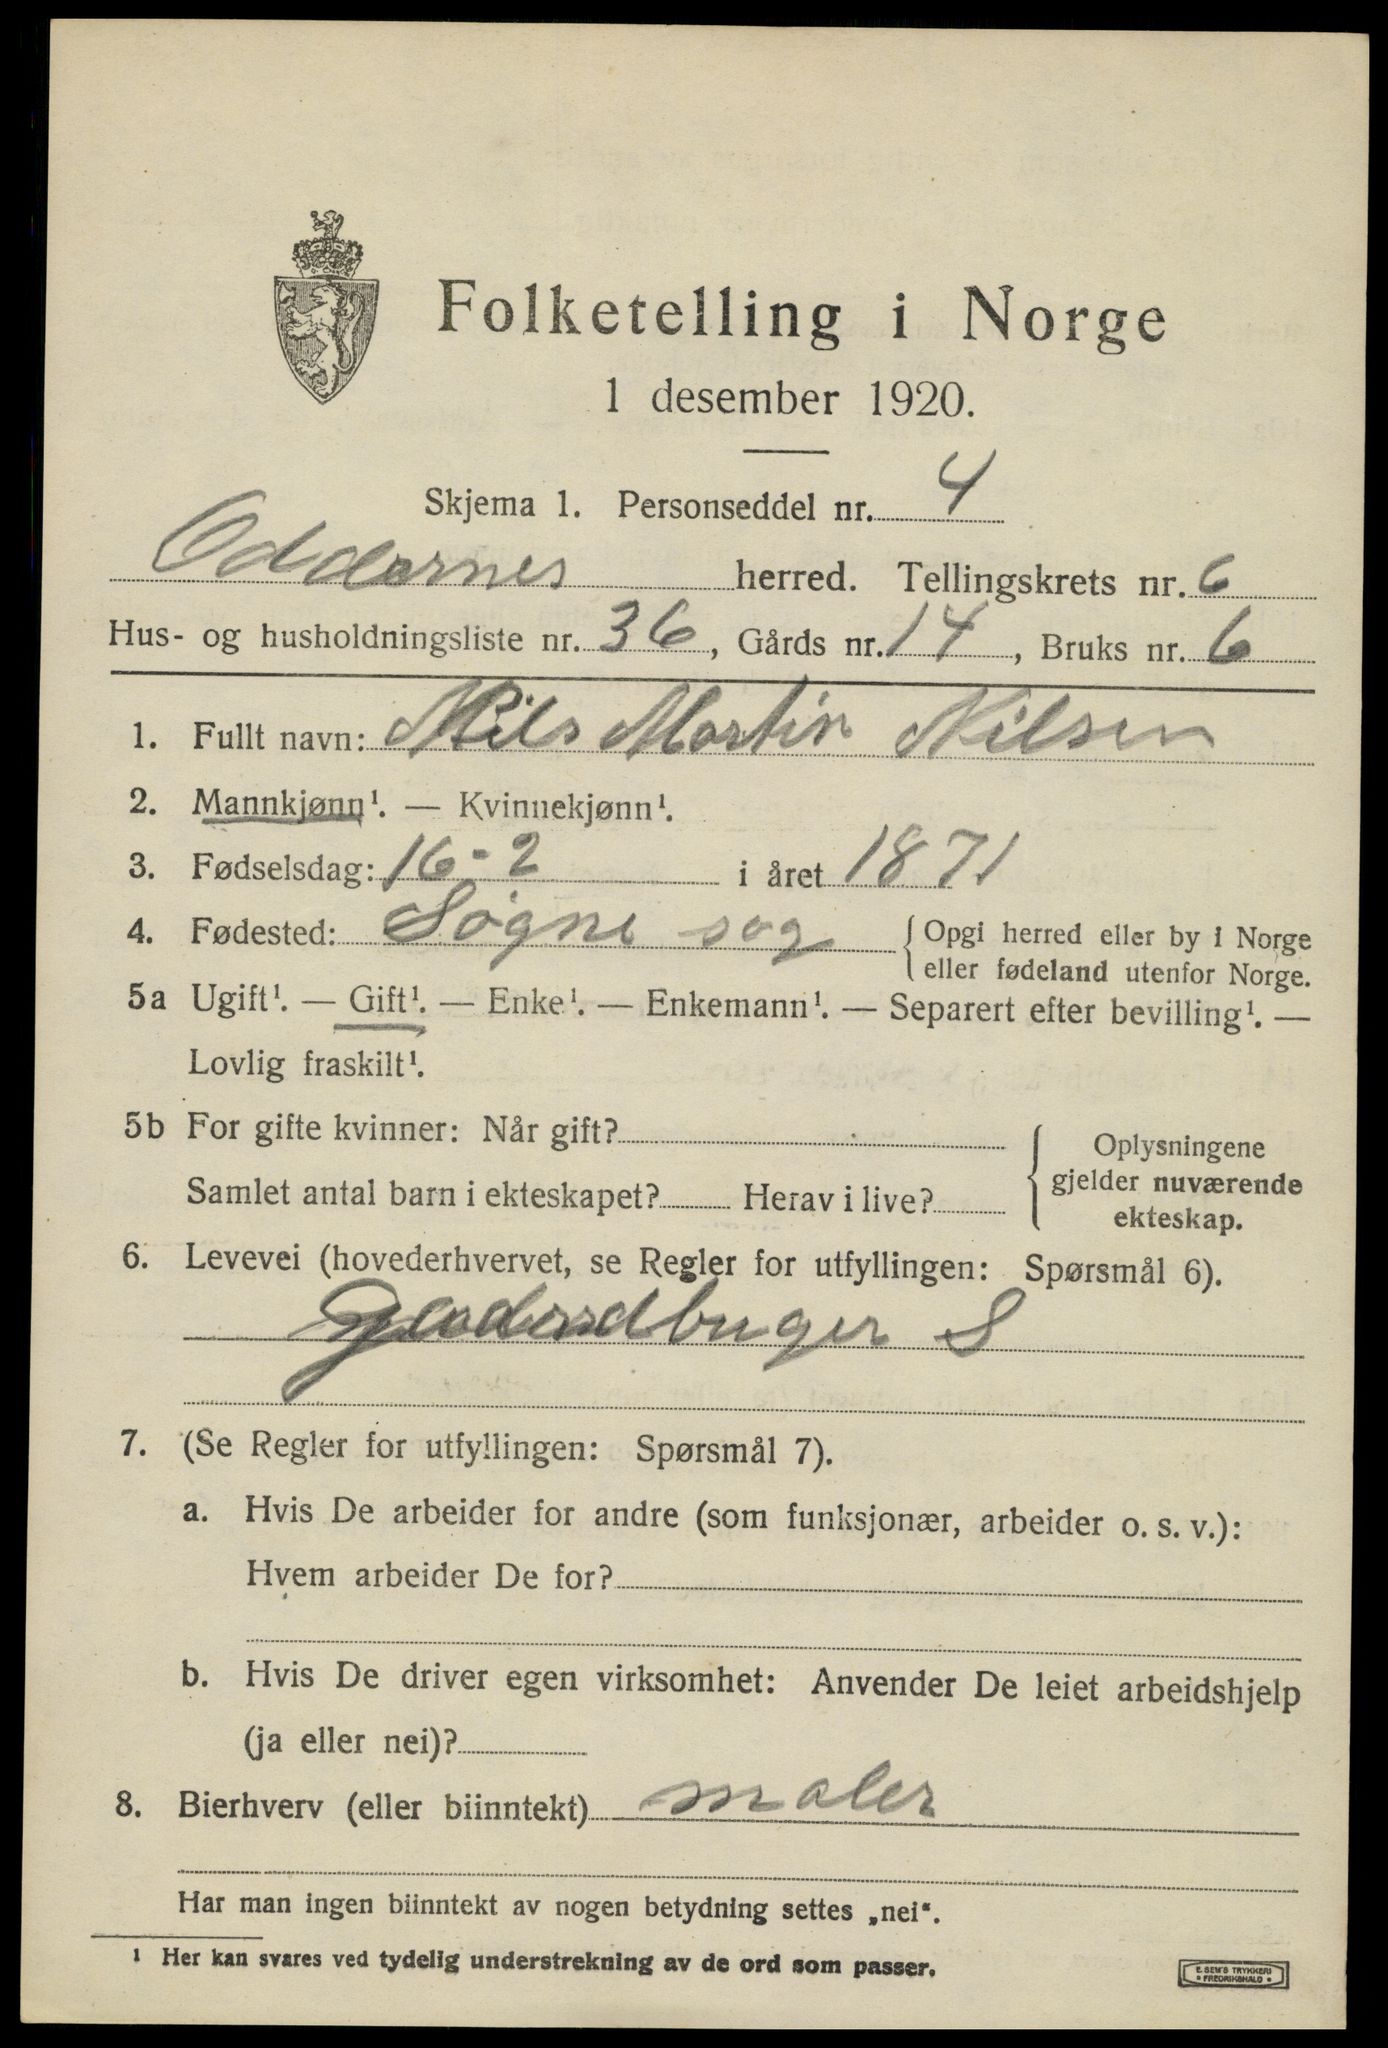 Folketelling i Norge
1 desember 1920.
Skjema 1. Personseddel nr. 4
Oddernes herred. Tellingskrets nr. 6
Hus- og husholdningsliste nr. 36, Gårds nr. 14, Bruks nr. 6
1. Fullt navn: Nils Martin Nilsen
2. Mannkjønn¹. — Kvinnekjønn¹.
3. Fødselsdag: 16-2 i året 1871
4. Fødested: Søgne sog { Opgi herred eller by i Norge
eller fødeland utenfor Norge.
5a Ugift¹. — Gift¹. — Enke¹. — Enkemann¹. — Separert efter bevilling¹. —
Lovlig fraskilt¹.
5b For gifte kvinner: Når gift?
Samlet antal barn i ekteskapet? Herav i live?
{ Oplysningene
gjelder nuværende
ekteskap.
6. Levevei (hovederhvervet, se Regler for utfyllingen: Spørsmål 6).
S
7. (Se Regler for utfyllingen: Spørsmål 7).
a. Hvis De arbeider for andre (som funksjonær, arbeider o. s. v.):
Hvem arbeider De for?
b. Hvis De driver egen virksomhet: Anvender De leiet arbeidshjelp
(ja eller nei)?
8. Bierhverv (eller biinntekt) maler
Har man ingen biinntekt av nogen betydning settes „nei“.
¹ Her kan svares ved tydelig understrekning av de ord som passer.
E. SEM'S TRYKKERI
• FREDRIKSHALD •